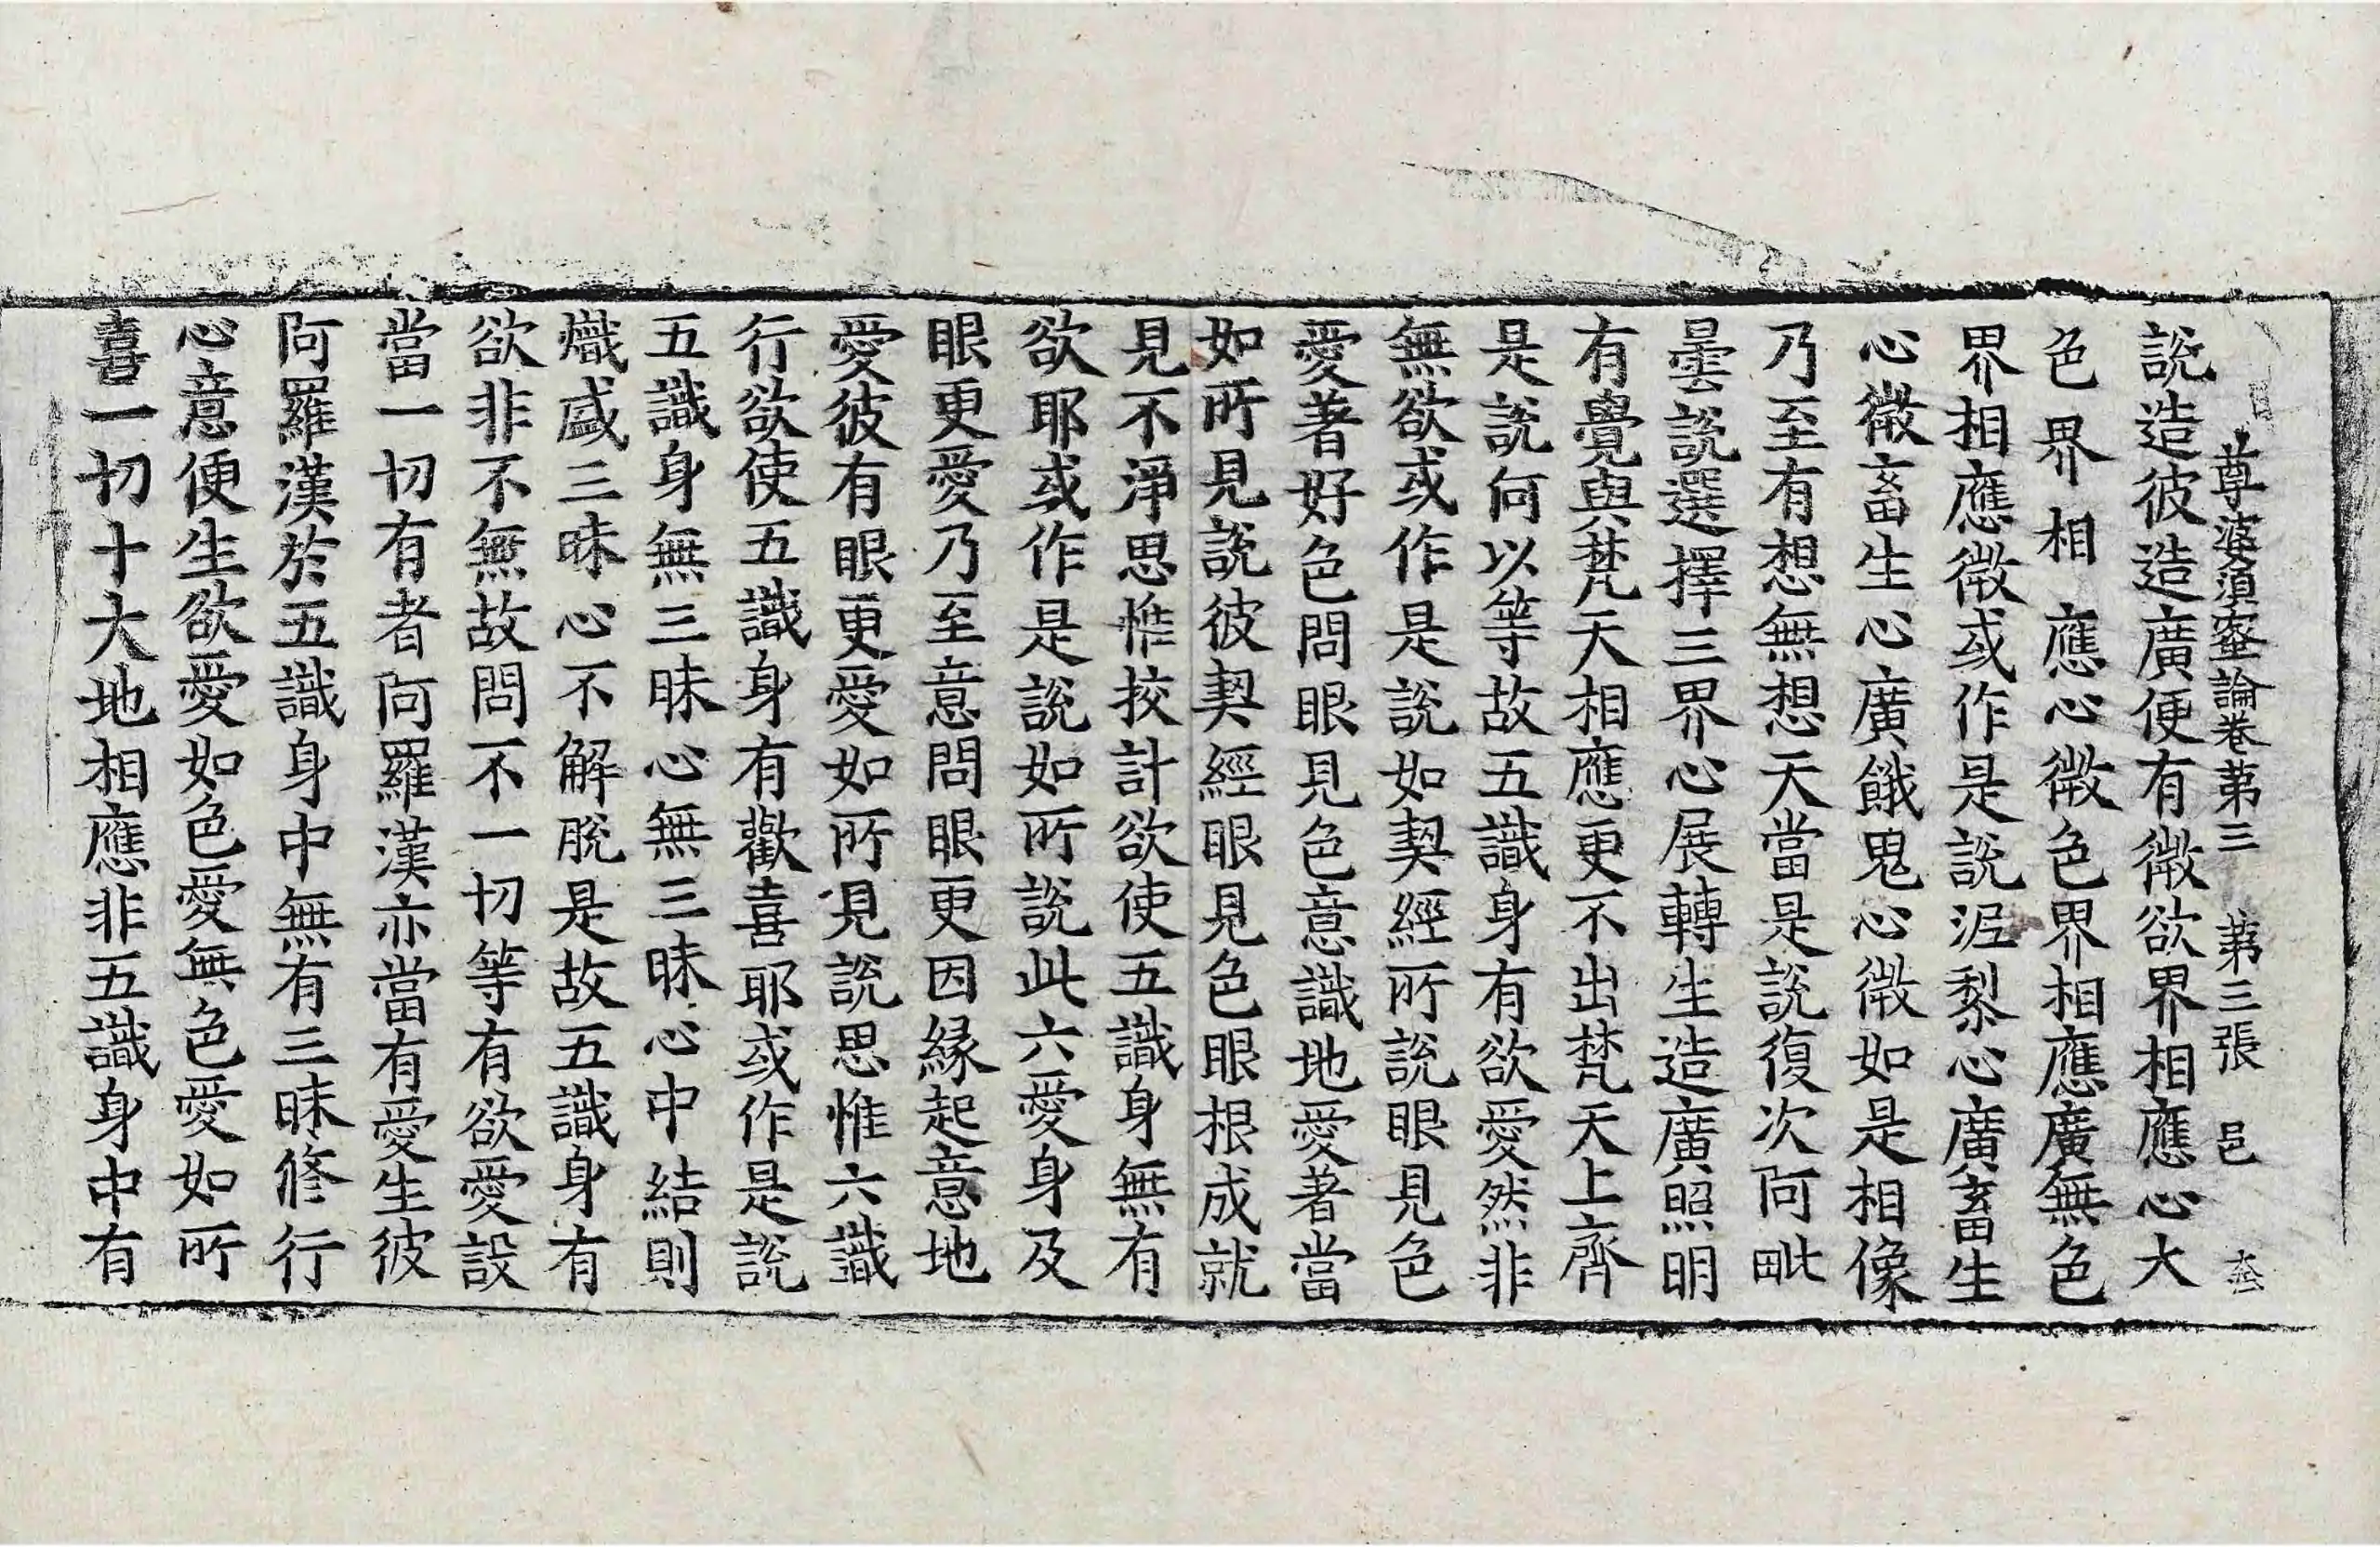 尊婆須蜜論卷第三 第三張 邑
說造彼造廣便有微欲界相應心大
色界相應心微色界相應廣無色
界相應微或作是說泥犁心廣畜生
心微畜生心廣餓鬼心微如是相像
乃至有想無想天當是說復次阿毗
曇說選擇三界心展轉生造廣照明
有覺與梵天相應更不出梵天上齊
是說何以等故五識身有欲愛然非
無欲或作是說如契經所說眼見色
愛著好色問眼見色意識地愛著當
如所見說彼契經眼見色眼根成就
見不淨思惟挍計欲使五識身無有
欲耶或作是說如所說此六愛身及
眼更愛乃至意問眼更因緣起意地
愛彼有眼更愛如所見說思惟六識
行欲使五識身有歡喜耶或作是說
五識身無三昧心無三昧心中結則
熾盛三昧心不解脫是故五識身有
欲非不無故問不一切等有欲愛設
當一切有者阿羅漢亦當有愛生彼
阿羅漢於五識身中無有三昧修行
心意便生欲愛如色愛無色愛如所
喜一切十大地相應非五識身中有